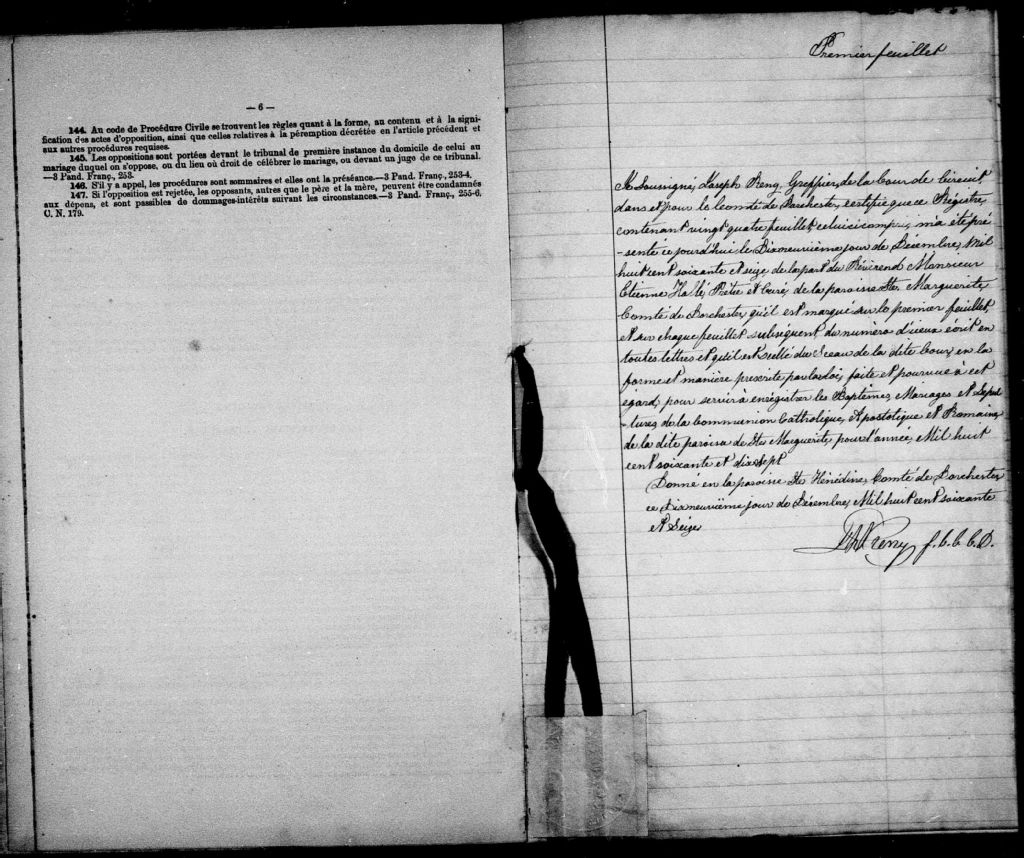 — 6 —
144. Au code de Procédure Civile se trouvent les règles quant à la forme, au contenu et à la signi-
fication des actes d'opposition, ainsi que celles relatives à la péremption décrétée en l'article précédent et
aux autres procédures requises.
145. Les oppositions sont portées devant le tribunal de première instance du domicile de celui au
mariage duquel on s'oppose, ou du lieu où droit de célébrer le mariage, ou devant un juge de ce tribunal.
—3 Pand. Franç., 253.
146. S'il y a appel, les procédures sont sommaires et elles ont la préséance.—3 Pand. Franç., 253-4.
147. Si l'opposition est rejetée, les opposants, autres que le père et la mère, peuvent être condamnés
aux dépens, et sont passibles de dommages-intérêts suivant les circonstances.—3 Pand. Franç., 255-6.
C. N. 179.
Premier feuillet
Soussigné, Joseph Reny, Greffier, de la Cour de Circuit
dans et pour le Comté de Dorchester, certifie que ce Régistre,
contenant vingt quatre feuillets celui ici compris, m'a été pré
-senté ce jourd'hui, le Dixneuvième jour de Décembre, Mil
huit cent soixante et seize, de la part du Révérend Monsieur
Etienne Hallé, Prêtre et Curé, de la paroisse Ste Marguerite,
Comté de Dorchester, qu'il est marqué sur le premier feuillet,
et sur chaque feuillet subséquent du numéro d'iceux écrit en
toutes lettres et qu'il est scellé du Sceau de la dite Cour, en la
forme et manière prescrite par la loi, faite et pourvue à cet
égard, pour servir à enrégistrer les Baptêmes, Mariages et Sépul
-tures, de la Communion Catholique, Apostolique et Romaine,
de la dite paroisse de Ste Marguerite, pour l'année, Mil huit
cent soixante et dix sept
Donné en la paroisse Ste Hénédine, Comté de Dorchester,
ce Dixneuvième jour de Décembre, Mil huit cent soixante
et Seize
Reny